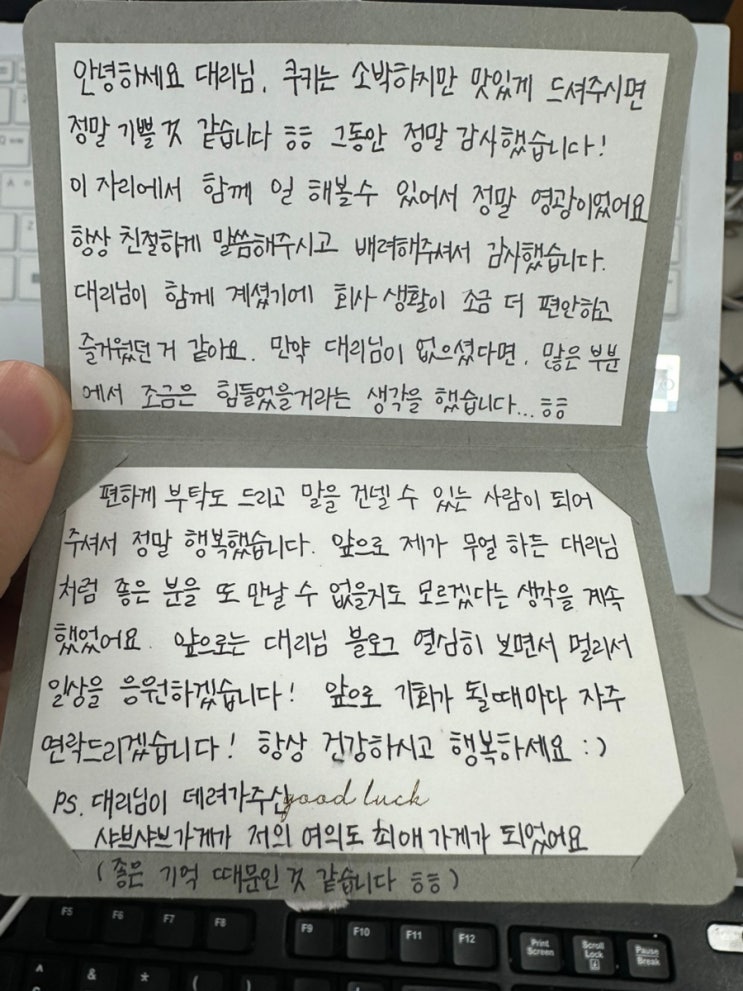 안녕하세요 대리님. 쿠키는 소박하지만 맛있게 드셔주시면
정말 기쁠 것 같습니다 ㅎㅎ 그동안 정말 감사했습니다!
이 자리에서 함께 일 해볼 수 있어서 정말 영광이었어요
항상 친절하게 말씀해주시고 배려해주셔서 감사했습니다.
대리님이 함께 계셨기에 회사 생활이 조금 더 편안하고
즐거웠던 거 같아요. 만약 대리님이 없으셨다면, 많은 부분
에서 조금은 힘들었을거라는 생각을 했습니다... ㅎㅎ
편하게 부탁도 드리고 말을 건넬 수 있는 사람이 되어
주셔서 정말 행복했습니다. 앞으로 제가 무얼 하든 대리님
처럼 좋은 분을 또 만날 수 없을지도 모르겠다는 생각을 계속
했었어요. 앞으로는 대리님 블로그 열심히 보면서 멀리서
일상을 응원하겠습니다! 앞으로 기회가 될때마다 자주
연락드리겠습니다! 항상 건강하시고 행복하세요 :)
PS. 대리님이 데려가주신 good luck
샤브샤브가게가 저의 여의도 최애 가게가 되었어요
(좋은 기억 때문인 것 같습니다 ㅎㅎ)
F5 F6 F7 F8 F9 F10 F11 F12 Print Screen Scroll Lock Pause Break
^ & * ( )